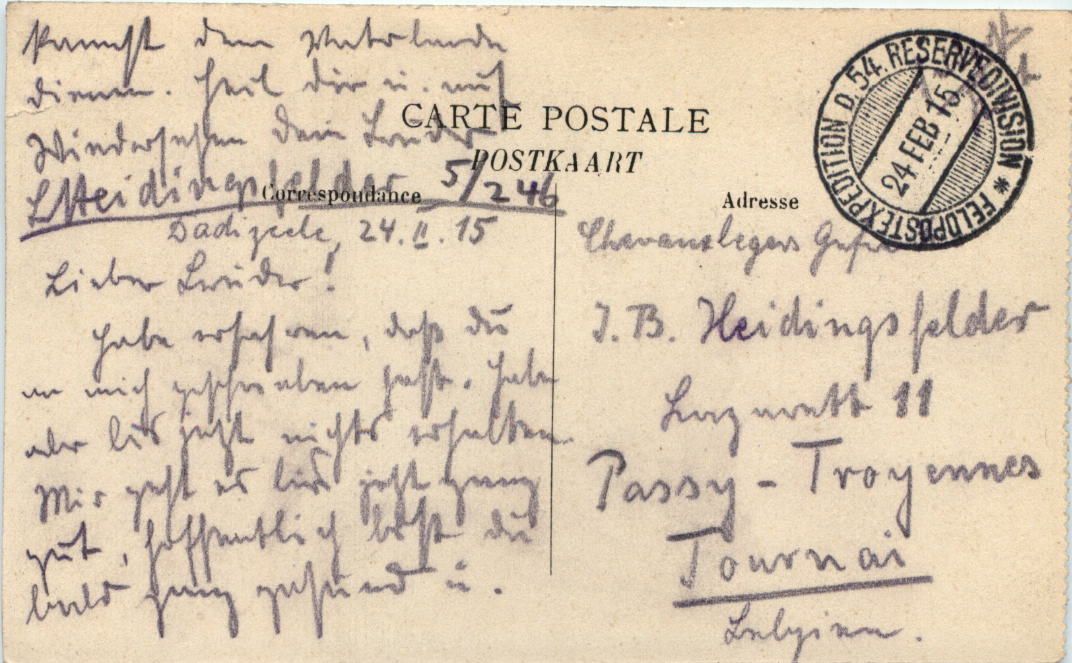 kannst dem Vaterlande
dienen. Heil dir u. auf
Wiedersehen Dein Bruder
Heidingsfelder 5/246
CARTE POSTALE
POSTKAART
Correspondance
Adresse
FELDPOSTEXPEDITION D. 54. RESERVEDIVISION *
24 FEB 15
Dadizeele, 24.II.15
Lieber Bruder!
Habe erfahren, daß du
an mich geschrieben hast. Habe
aber bis jetzt nichts erhalten.
Mir geht es bis jetzt ganz
gut, hoffentlich bist du
bald ganz gesund u.
Chevauxlegers Gefr
J. B. Heidingsfelder
Lazarett 11
Passy - Troyennes
Tournai
Belgien.